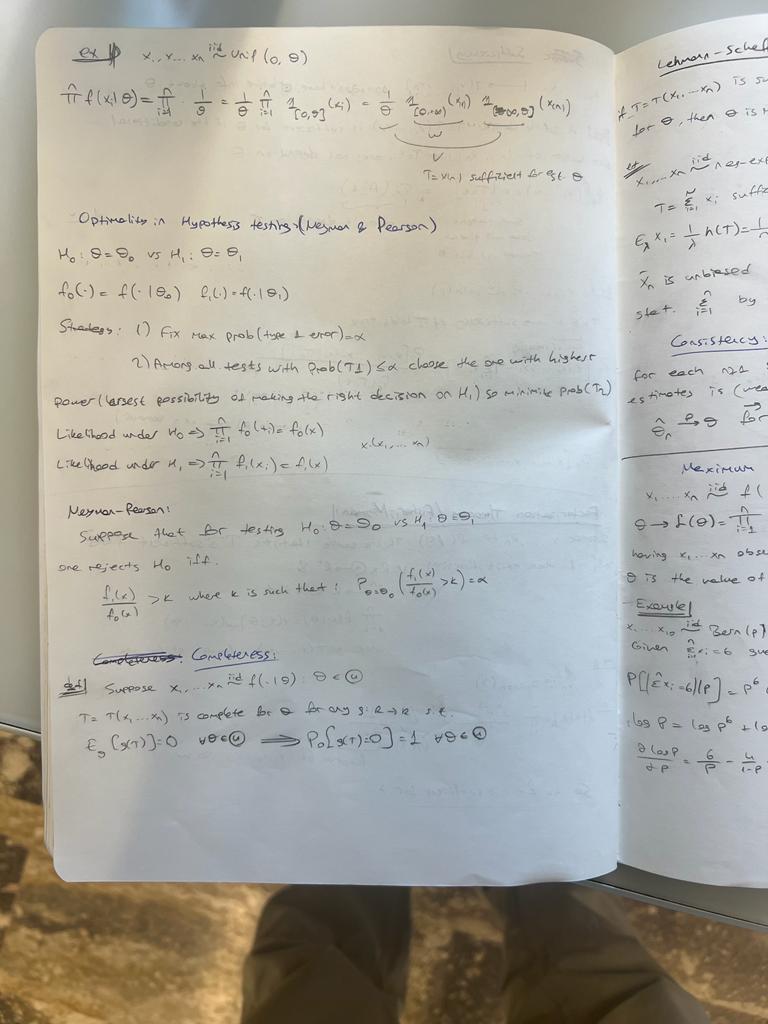 ex x₁, x₂ ... xₙ iid~ Unif (0, θ)
∏ⁿ f(xᵢ|θ) = ∏ⁿᵢ₌₁ 1/θ = 1/θ ∏ⁿᵢ₌₁ 𝟙[0,θ](xᵢ) = 1/θ 𝟙[0,+∞)(x₍₁₎) 𝟙(-∞,θ](x₍ₙ₎)
T = x₍ₙ₎ sufficient for est. θ
Optimality in Hypothesis testing: (Neyman & Pearson)
H₀: θ = θ₀ vs H₁: θ = θ₁
f₀(·) = f(·|θ₀) f₁(·) = f(·|θ₁)
Strategy: 1) Fix max prob(type 1 error) = α
2) Among all tests with Prob(T1) ≤ α choose the one with highest
power (largest possibility of making the right decision on H₁) so minimize prob(T2)
Likelihood under H₀ ⇒ ∏ⁿᵢ₌₁ f₀(xᵢ) = f₀(x)
x.(x₁, ... xₙ)
Likelihood under H₁ ⇒ ∏ⁿᵢ₌₁ f₁(xᵢ) = f₁(x)
Neyman-Pearson:
Suppose that for testing H₀: θ = θ₀ vs H₁: θ = θ₁
one rejects H₀ iff.
f₁(x)/f₀(x) > k where k is such that: P_θ=θ₀ (f₁(x)/f₀(x) > k) = α
Completeness: Completeness:
def Suppose x₁, ... xₙ iid~ f(·|θ): θ ∈ Θ
T = T(x₁, ... xₙ) is complete for θ for any g: R→R s.t.
E_θ [g(T)] = 0 ∀θ∈Θ ⟹ P_θ[g(T)=0] = 1 ∀θ∈Θ
Lehmann-Schef
if T = T(x₁, ... xₙ) is su
for θ, then θ is
ex x₁, ... xₙ iid~ neg-ex
T = Σⁿᵢ₌₁ xᵢ suff
E_λ x₁ = 1/λ h(T) = 1/n
x̄ₙ is unbiased
stat. Σⁿᵢ₌₁ by
Consistency:
for each n≥1
estimates is (wea
θ̂ₙ →ᴾ θ for
Maximum
x₁, ... xₙ iid~ f(
θ → L(θ) = ∏ⁿᵢ₌₁
having x₁, ... xₙ obse
θ is the value of
Example
x₁, ... x₁₀ iid~ Bern(p)
Given Σⁿᵢ₌₁ xᵢ = 6
P[(Σxᵢ = 6)|p] = p⁶
log P = log p⁶ + lo
∂logp/∂p = 6/p - 4/1-p